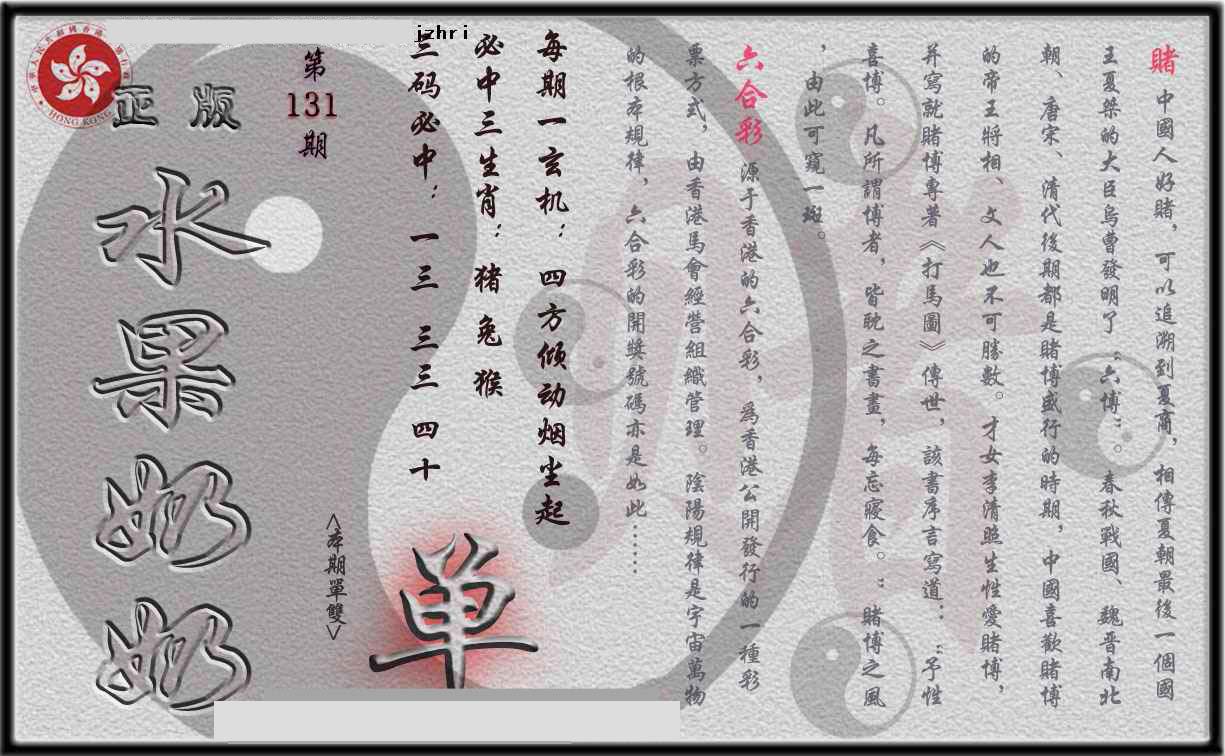 賭 中國人好賭，可以追溯到夏商，相傳夏朝最後一個國
王夏桀的大臣烏曹發明了“六博”。春秋戰國、魏晋南北
朝、唐宋、清代後期都是賭博盛行的時期，中國喜歡賭博
的帝王將相、文人也不可勝數。才女李清照生性愛賭博，
并寫就賭博專著《打馬圖》傳世，該書序言寫道：“予性
喜博。凡所謂博者，皆耽之書畫，每忘寢食。”賭博之風
，由此可窺一斑。
六合彩 源于香港的六合彩，爲香港公開發行的一種彩
票方式，由香港馬會經營組織管理。陰陽規律是宇宙萬物
的根本規律，六合彩的開獎號碼亦是如此……
每期一玄机：四方倾动烟尘起
必中三生肖：猪兔猴
三码必中：一三 三三 四十
jzhri
第
131
期
<本期單雙>
单
正版
水果奶奶
HONG KONG